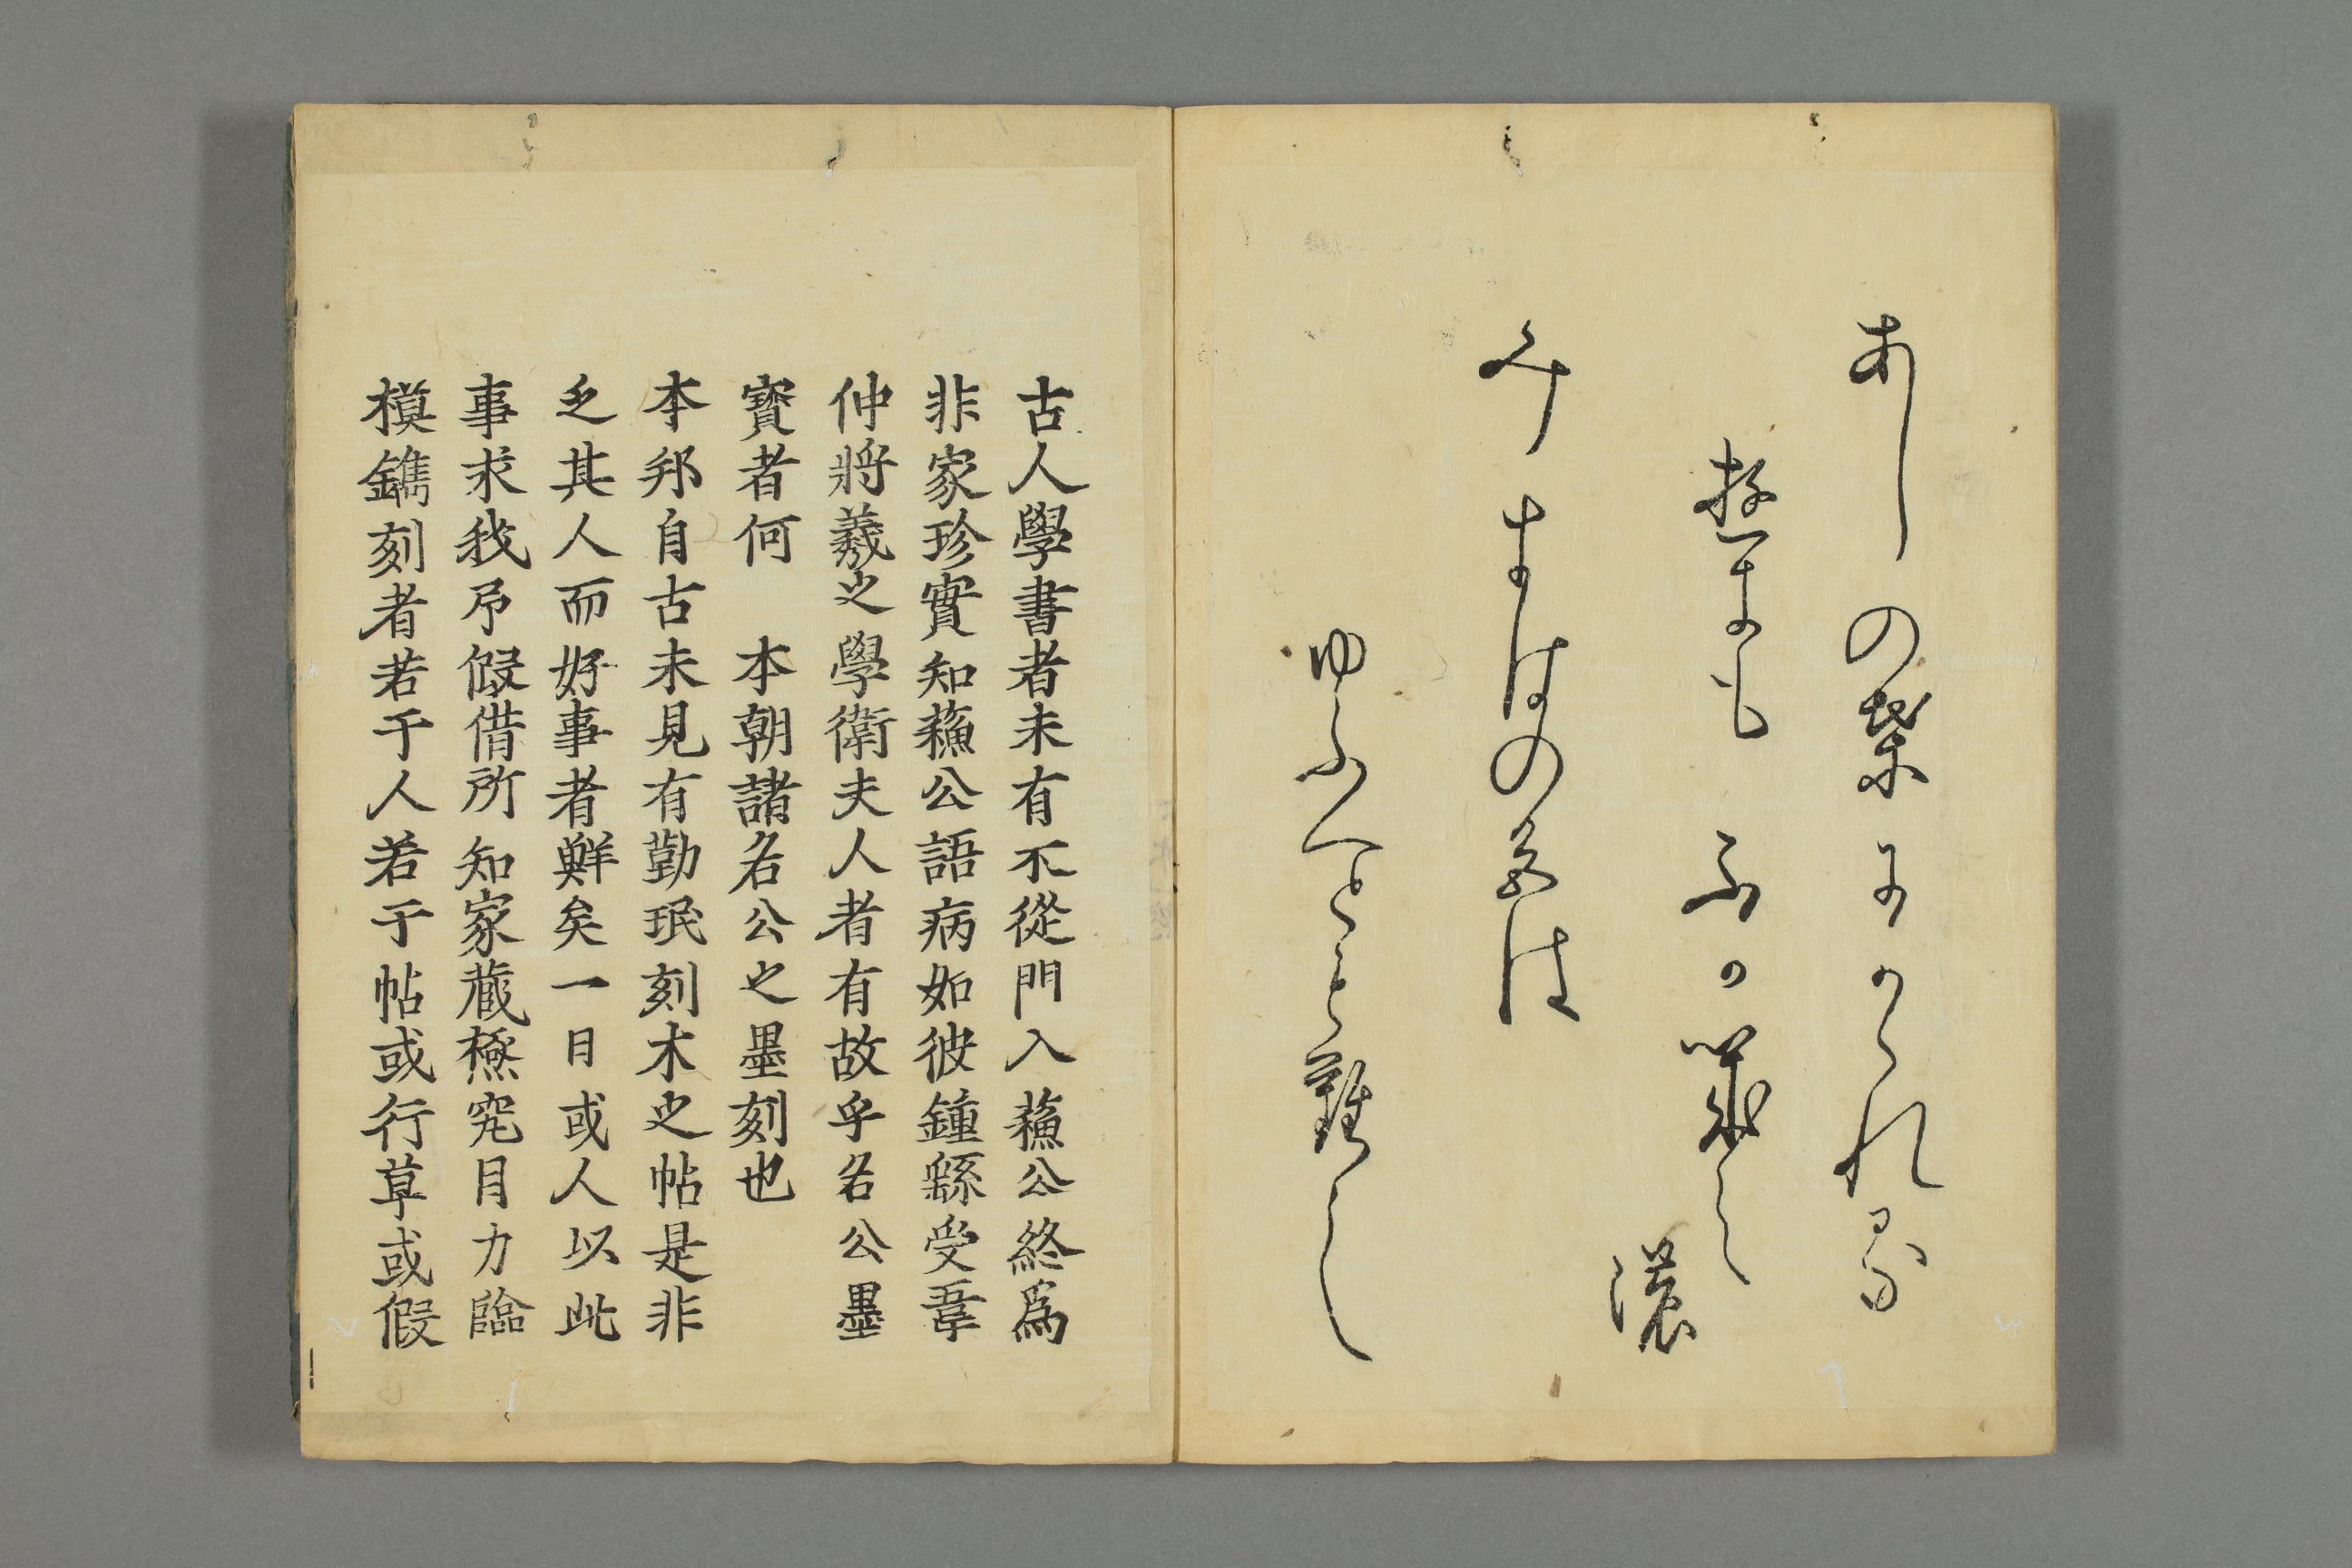 あしの葉にかくれ
み
濃
ゆふへとそ難し
古人學書者未有不從門入蘓公終爲
非家珍實知蘓公語病如彼鍾繇受韋
仲將羲之學衛夫人者有故乎名公墨
寶者何　本朝諸名公之墨刻也
本邦自古未見有勒珉刻木之帖是非
乏其人而好事者鮮矣一日或人以此
事求我予假借所知家藏極究目力臨
模鐫刻者若于人若于帖或行草或假